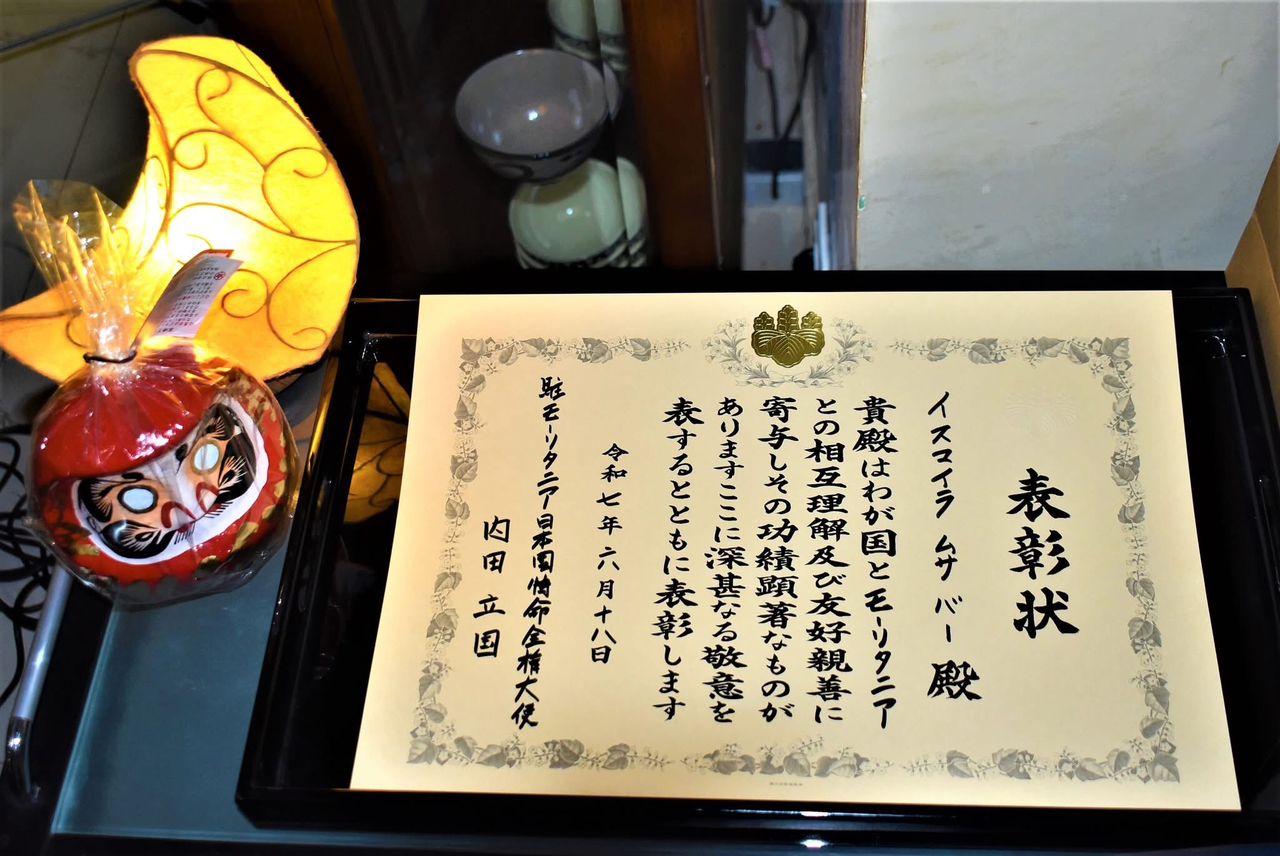 表彰状
イスマイラ ムサ バー 殿
貴殿はわが国とモーリタニア
との相互理解及び友好親善に
寄与しその功績顕著なものが
ありますここに深甚なる敬意を
表するとともに表彰します
令和七年六月十八日
駐モーリタニア日本国特命全権大使
内田立国